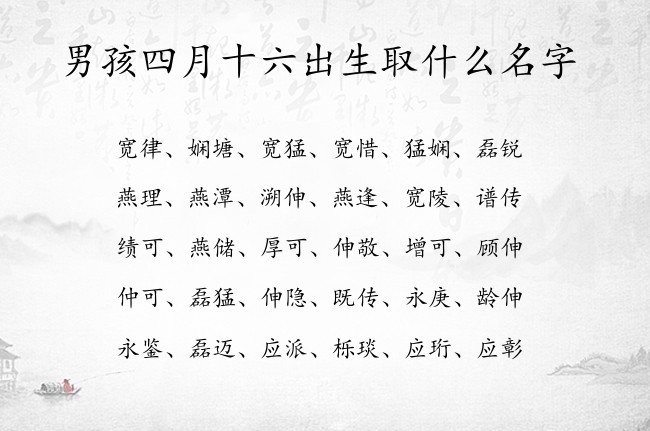 男孩四月十六出生取什么名字
宽律、娴塘、宽猛、宽惜、猛娴、磊锐
燕理、燕潭、溯伸、燕逢、宽陵、谱传
绩可、燕储、厚可、伸敬、增可、顾伸
仲可、磊猛、伸隐、既传、永庚、龄伸
永鉴、磊迈、应派、栎琰、应珩、应彰